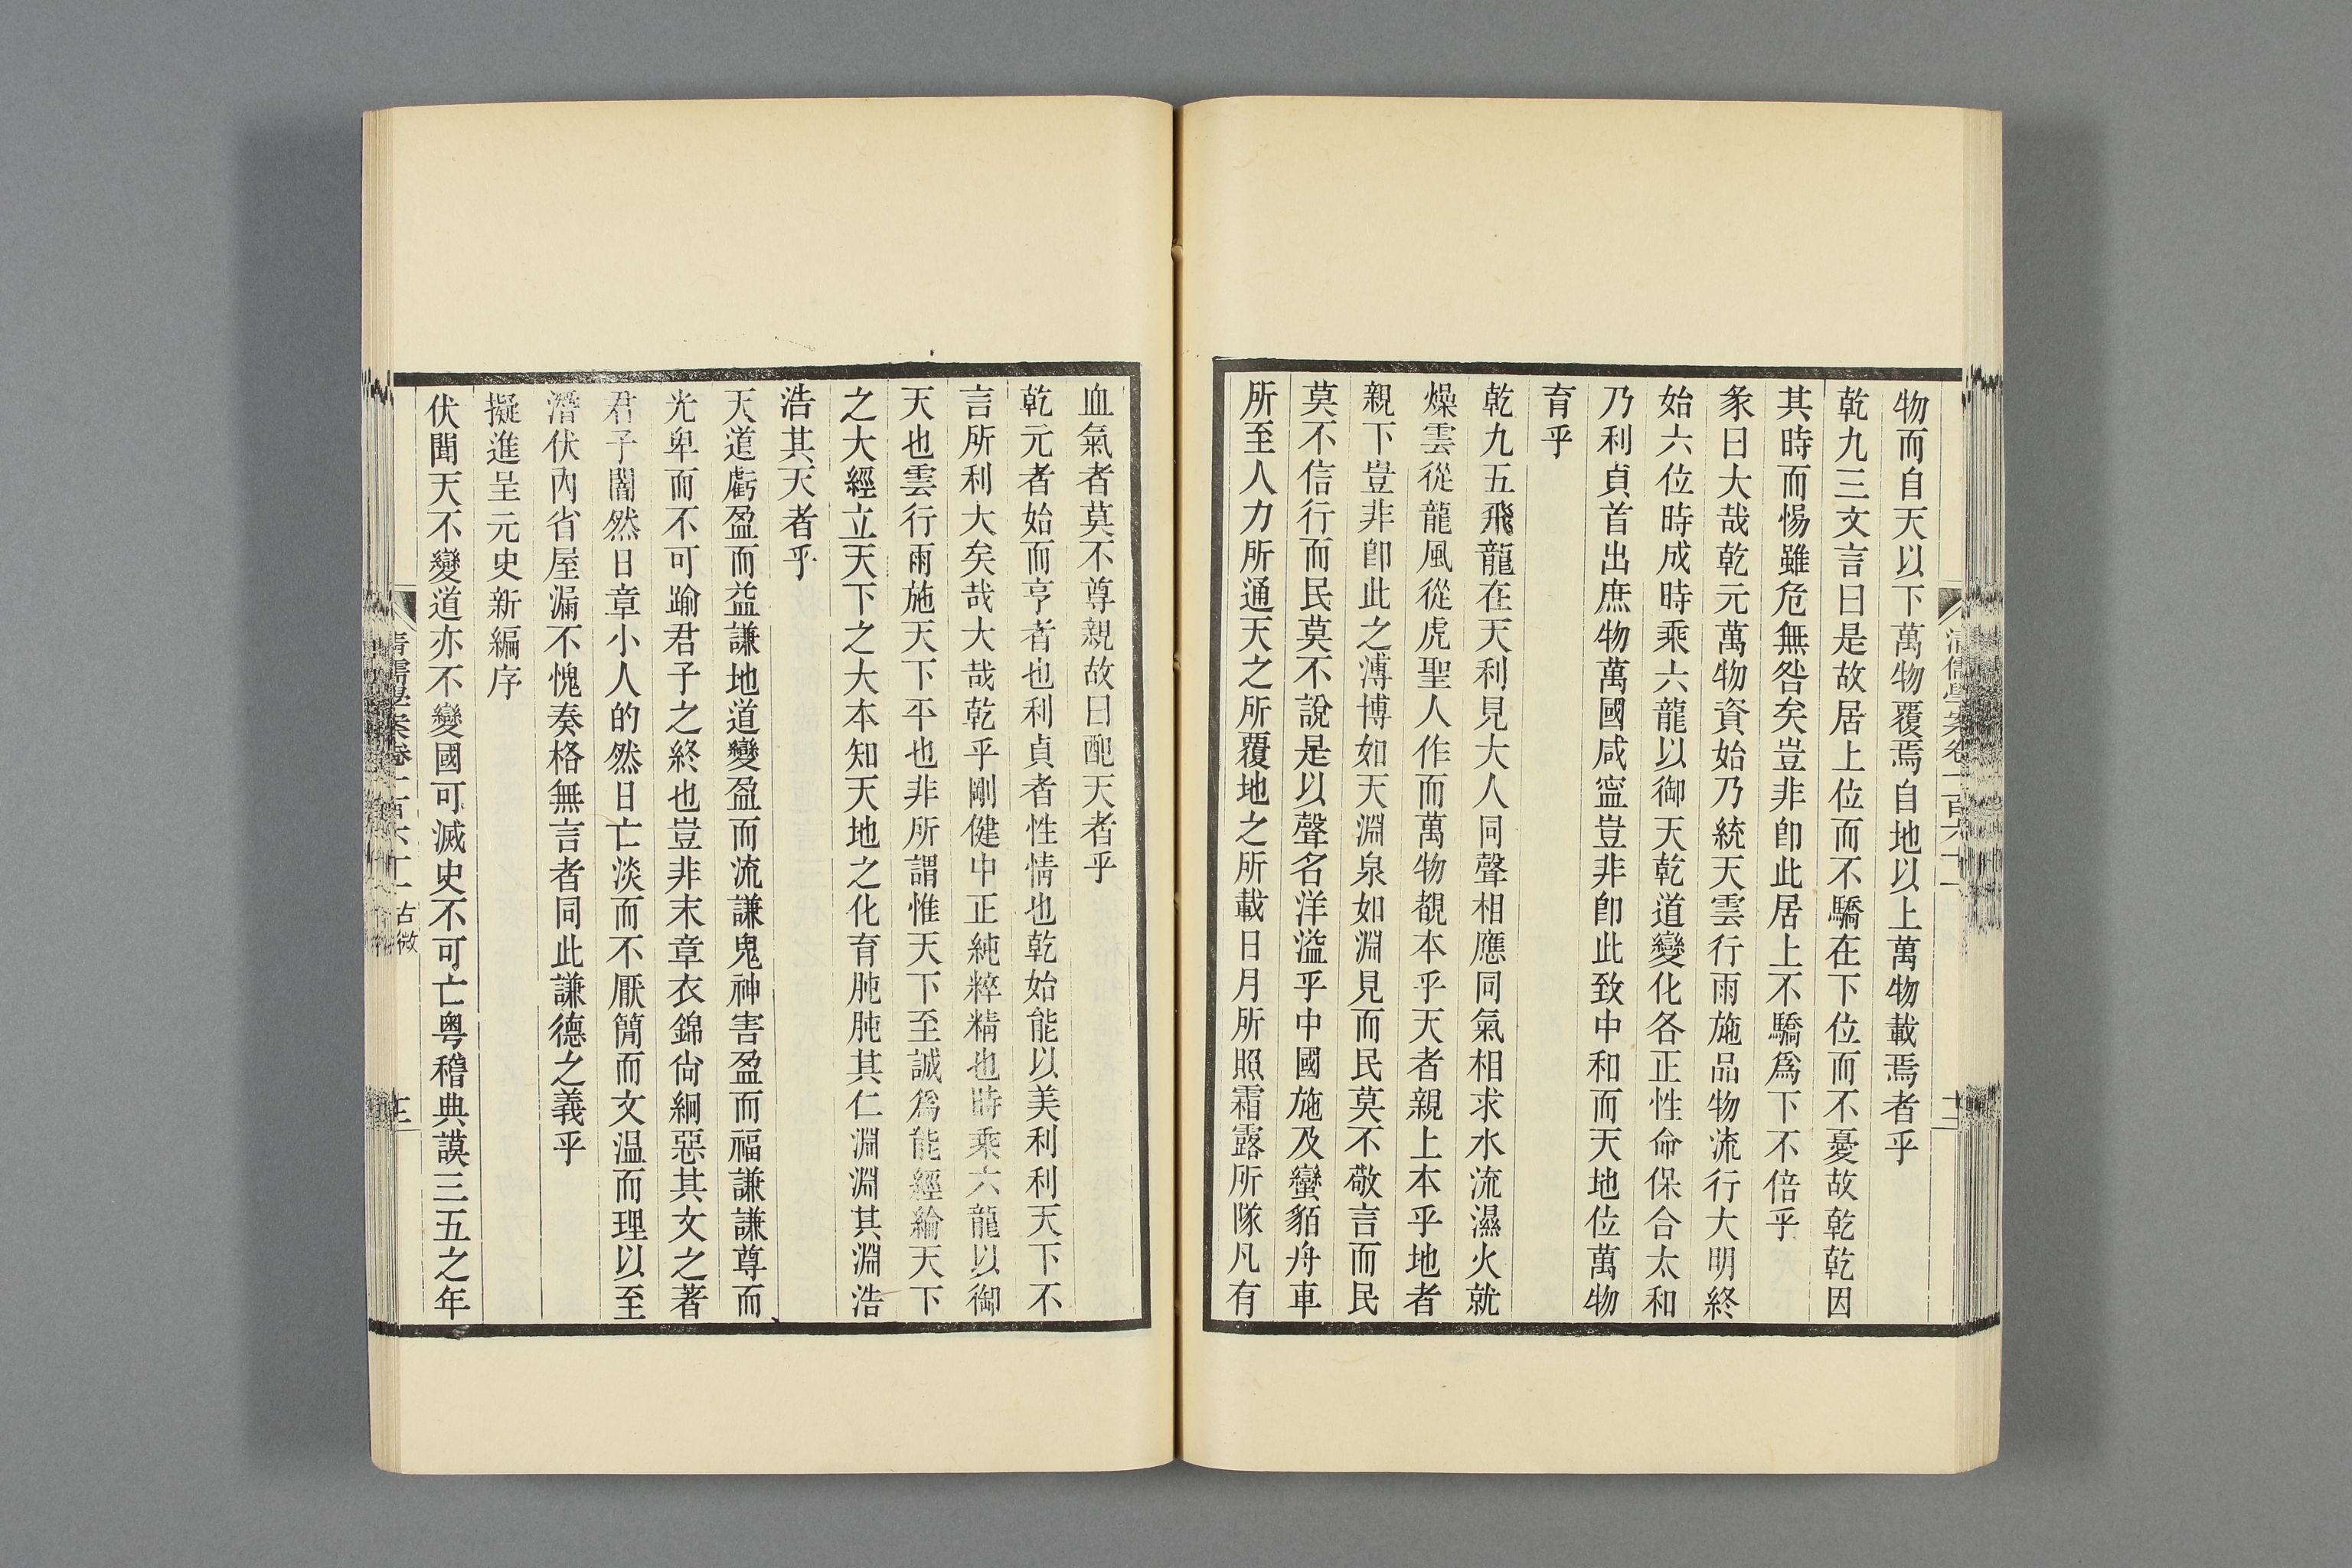 清儒學案卷一百六十一
物而自天以下萬物覆焉自地以上萬物載焉者乎
乾九三文言曰是故居上位而不驕在下位而不憂故乾乾因
其時而惕雖危無咎矣豈非卽此居上不驕爲下不倍乎
彖曰大哉乾元萬物資始乃統天雲行雨施品物流行大明終
始六位時成時乘六龍以御天乾道變化各正性命保合太和
乃利貞首出庶物萬國咸寍豈非卽此致中和而天地位萬物
育乎
乾九五飛龍在天利見大人同聲相應同氣相求水流濕火就
燥雲從龍風從虎聖人作而萬物覩本乎天者親上本乎地者
親下豈非卽此之溥博如天淵泉如淵見而民莫不敬言而民
莫不信行而民莫不說是以聲名洋溢乎中國施及蠻貊舟車
所至人力所通天之所覆地之所載日月所照霜露所隊凡有
血氣者莫不尊親故曰配天者乎
乾元者始而亨者也利貞者性情也乾始能以美利利天下不
言所利大矣哉大哉乾乎剛健中正純粹精也時乘六龍以御
天也雲行雨施天下平也非所謂惟天下至誠爲能經綸天下
之大經立天下之大本知天地之化育肫肫其仁淵淵其淵浩
浩其天者乎
天道虧盈而益謙地道變盈而流謙鬼神害盈而福謙謙尊而
光卑而不可踰君子之終也豈非末章衣錦尙絅惡其文之著
君子闇然日章小人的然日亡淡而不厭簡而文溫而理以至
潛伏內省屋漏不愧奏格無言者同此謙德之義乎
擬進呈元史新編序
伏聞天不變道亦不變國可滅史不可亡粵稽典謨三五之年
清儒學案卷一百六十一 古微